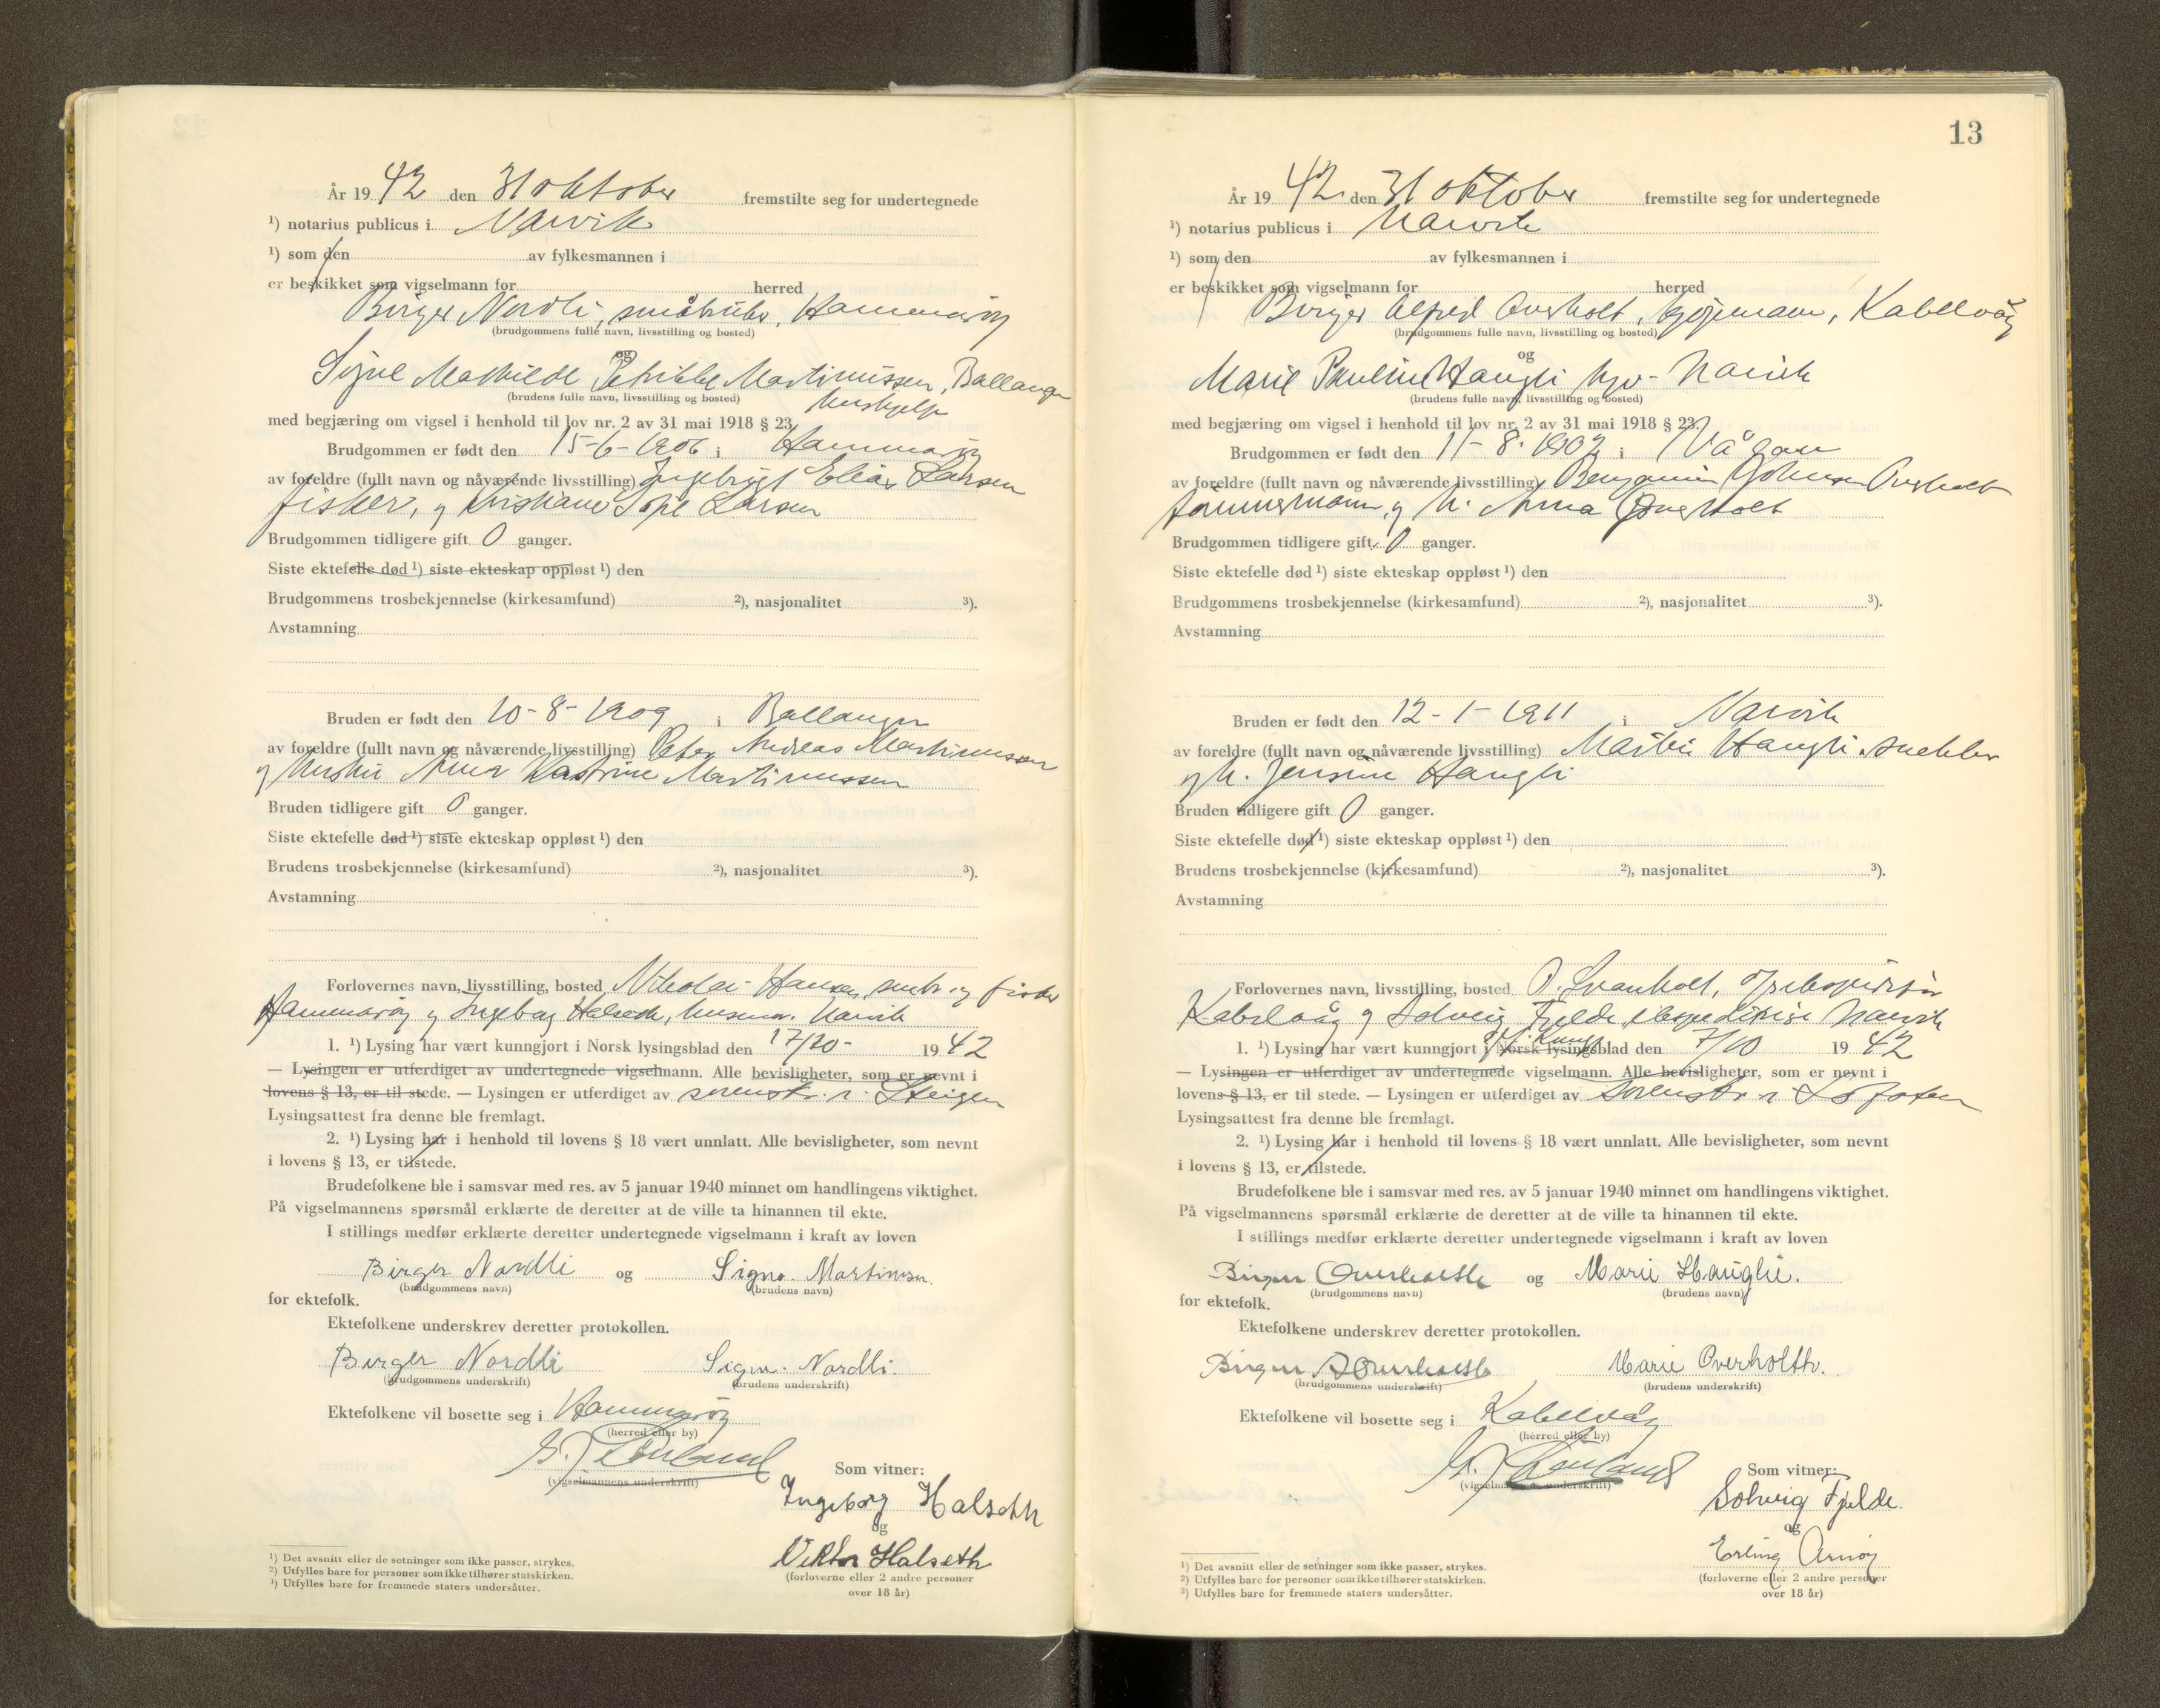 År 1942 den 31 oktober fremstilte seg for undertegnede
¹) notarius publicus i Narvik
¹) som den av fylkesmannen i
er beskikket som vigselmann for herred
Birger Nordli, småbruker, Hammarøy
(brudgommens fulle navn, livsstilling og bosted)
og
Signe Mathilde Petrikke Martinussen, Ballangen
(brudens fulle navn, livsstilling og bosted)
hushjelp
med begjæring om vigsel i henhold til lov nr. 2 av 31 mai 1918 § 23.
Brudgommen er født den 15-6-1906 i Hammarøy
av foreldre (fullt navn og nåværende livsstilling) Ingebrigt Elias Larsen
fisker, og Kristiane Larsen
Brudgommen tidligere gift 0 ganger.
Siste ektefelle død ¹) siste ekteskap oppløst ¹) den
Brudgommens trosbekjennelse (kirkesamfund) ²), nasjonalitet ³).
Avstamning
Bruden er født den 10-8-1909 i Ballangen
av foreldre (fullt navn og nåværende livsstilling) Peter Andreas Martinussen
og hustru Anna Katrine Martinussen
Bruden tidligere gift 0 ganger.
Siste ektefelle død ¹) siste ekteskap oppløst ¹) den
Brudens trosbekjennelse (kirkesamfund) ²), nasjonalitet ³).
Avstamning
Forlovernes navn, livsstilling, bosted Nikolai Hansen, småbr. og fisker
Hammarøy og Ingeborg Halseth, husmor. Narvik
1. ¹) Lysing har vært kunngjort i Norsk lysingsblad den 17/10- 1942
— Lysingen er utferdiget av undertegnede vigselmann. Alle bevisligheter, som er nevnt i
lovens § 13, er til stede. — Lysingen er utferdiget av sorenskr. i Steigen
Lysingsattest fra denne ble fremlagt.
2. ¹) Lysing har i henhold til lovens § 18 vært unnlatt. Alle bevisligheter, som nevnt
i lovens § 13, er tilstede.
Brudefolkene ble i samsvar med res. av 5 januar 1940 minnet om handlingens viktighet.
På vigselmannens spørsmål erklærte de deretter at de ville ta hinannen til ekte.
I stillings medfør erklærte deretter undertegnede vigselmann i kraft av loven
Birger Nordli og Signe Martinsen.
(brudgommens navn) (brudens navn)
for ektefolk.
Ektefolkene underskrev deretter protokollen.
Birger Nordli Signe Nordli.
(brudgommens underskrift) (brudens underskrift)
Ektefolkene vil bosette seg i Hammarøy
(herred eller by)
(vigselmannens underskrift)
Som vitner:
Ingeborg Halseth
og
Viktor Halseth
(forloverne eller 2 andre personer
over 18 år)
¹) Det avsnitt eller de setninger som ikke passer, strykes.
²) Utfylles bare for personer som ikke tilhører statskirken.
³) Utfylles bare for fremmede staters undersåtter.
13
År 1942 den 31 oktober fremstilte seg for undertegnede
¹) notarius publicus i Narvik
¹) som den av fylkesmannen i
er beskikket som vigselmann for herred
Birger Alfred Overholt, Kabelvåg
(brudgommens fulle navn, livsstilling og bosted)
og
Marie Pauline Haugli Narvik
(brudens fulle navn, livsstilling og bosted)
med begjæring om vigsel i henhold til lov nr. 2 av 31 mai 1918 § 23.
Brudgommen er født den 11-8-1902 i Vågan
av foreldre (fullt navn og nåværende livsstilling) Benjamin Johnsen Overholt
tømmermann, og h. Anna Overholt
Brudgommen tidligere gift 0 ganger.
Siste ektefelle død ¹) siste ekteskap oppløst ¹) den
Brudgommens trosbekjennelse (kirkesamfund) ²), nasjonalitet ³).
Avstamning
Bruden er født den 12-1-1911 i Narvik
av foreldre (fullt navn og nåværende livsstilling) Martin Haugli snekker
og h. Jensine Haugli
Bruden tidligere gift 0 ganger.
Siste ektefelle død ¹) siste ekteskap oppløst ¹) den
Brudens trosbekjennelse (kirkesamfund) ²), nasjonalitet ³).
Avstamning
Forlovernes navn, livsstilling, bosted Svanholt,
Kabelvåg og Solveig Fjelde, Narvik
1. ¹) Lysing har vært kunngjort i Norsk lysingsblad den 7/10 1942
— Lysingen er utferdiget av undertegnede vigselmann. Alle bevisligheter, som er nevnt i
lovens § 13, er til stede. — Lysingen er utferdiget av sorenskr. i Lofoten
Lysingsattest fra denne ble fremlagt.
2. ¹) Lysing har i henhold til lovens § 18 vært unnlatt. Alle bevisligheter, som nevnt
i lovens § 13, er tilstede.
Brudefolkene ble i samsvar med res. av 5 januar 1940 minnet om handlingens viktighet.
På vigselmannens spørsmål erklærte de deretter at de ville ta hinannen til ekte.
I stillings medfør erklærte deretter undertegnede vigselmann i kraft av loven
Birger Overholth og Marie Hauglie.
(brudgommens navn) (brudens navn)
for ektefolk.
Ektefolkene underskrev deretter protokollen.
Birger A Overholth Marie Overholth.
(brudgommens underskrift) (brudens underskrift)
Ektefolkene vil bosette seg i Kabelvåg
(herred eller by)
(vigselmannens underskrift)
Som vitner:
Solveig Fjelde.
og
Erling Arnøy
(forloverne eller 2 andre personer
over 18 år)
¹) Det avsnitt eller de setninger som ikke passer, strykes.
²) Utfylles bare for personer som ikke tilhører statskirken.
³) Utfylles bare for fremmede staters undersåtter.